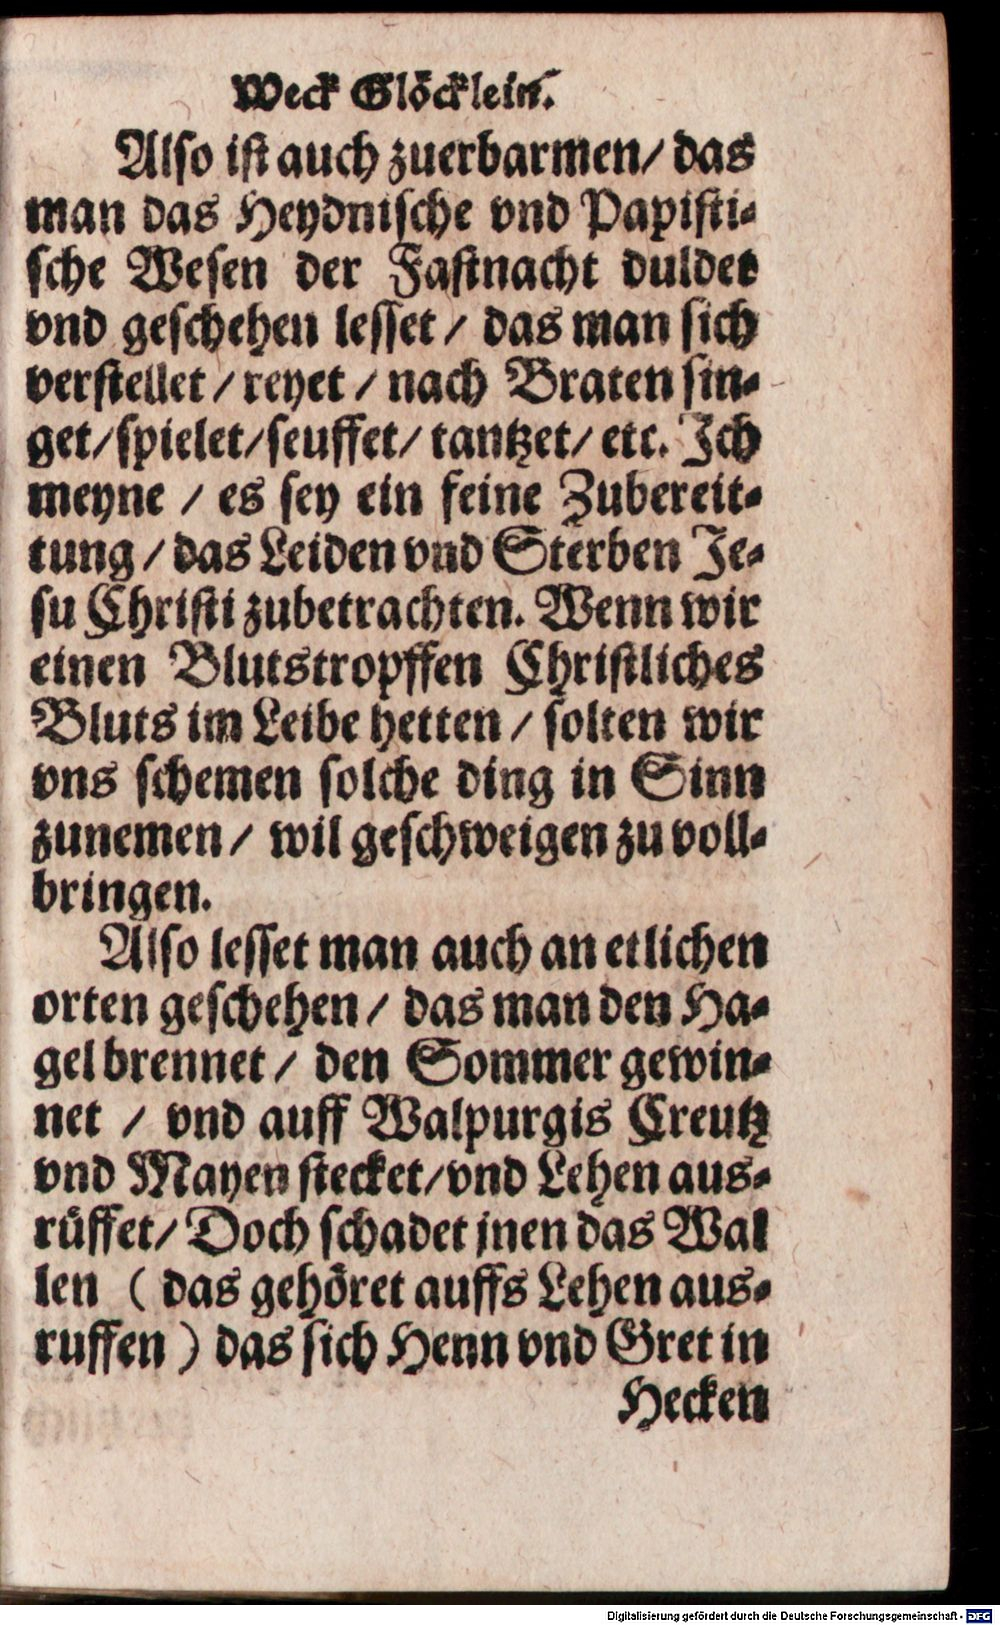 Weck Glöcklein.
Also ist auch zuerbarmen/ das
man das Heydnische vnd Papisti-
sche Wesen der Fastnacht duldet
vnd geschehen lesset / das man sich
verstellet / reyet / nach Braten sin-
get/spielet/seuffet/ tantzet/ etc. Ich
meyne / es sey ein feine Zubereit-
tung / das Leiden vnd Sterben Je-
su Christi zubetrachten. Wenn wir
einen Blutstropffen Christliches
Bluts im Leibe hetten / solten wir
vns schemen solche ding in Sinn
zunemen / wil geschweigen zu voll-
bringen.
Also lesset man auch an etlichen
orten geschehen / das man den Ha-
gel brennet / den Sommer gewin-
net / vnd auff Walpurgis Creutz
vnd Mayen stecket/vnd Lehen aus-
rüffet/ Doch schadet jnen das Wal
len ( das gehöret auffs Lehen aus-
ruffen ) das sich Henn vnd Gret in
Hecken
Digitalisierung gefördert durch die Deutsche Forschungsgemeinschaft - DFG